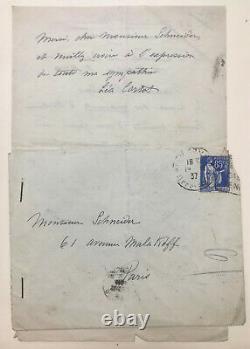 Merci, cher Monsieur Schneider,
et veuillez croire à l'expression
de toute ma sympathie
Léa
18
37
65
Monsieur Schneider
61 avenue Malakoff
Paris